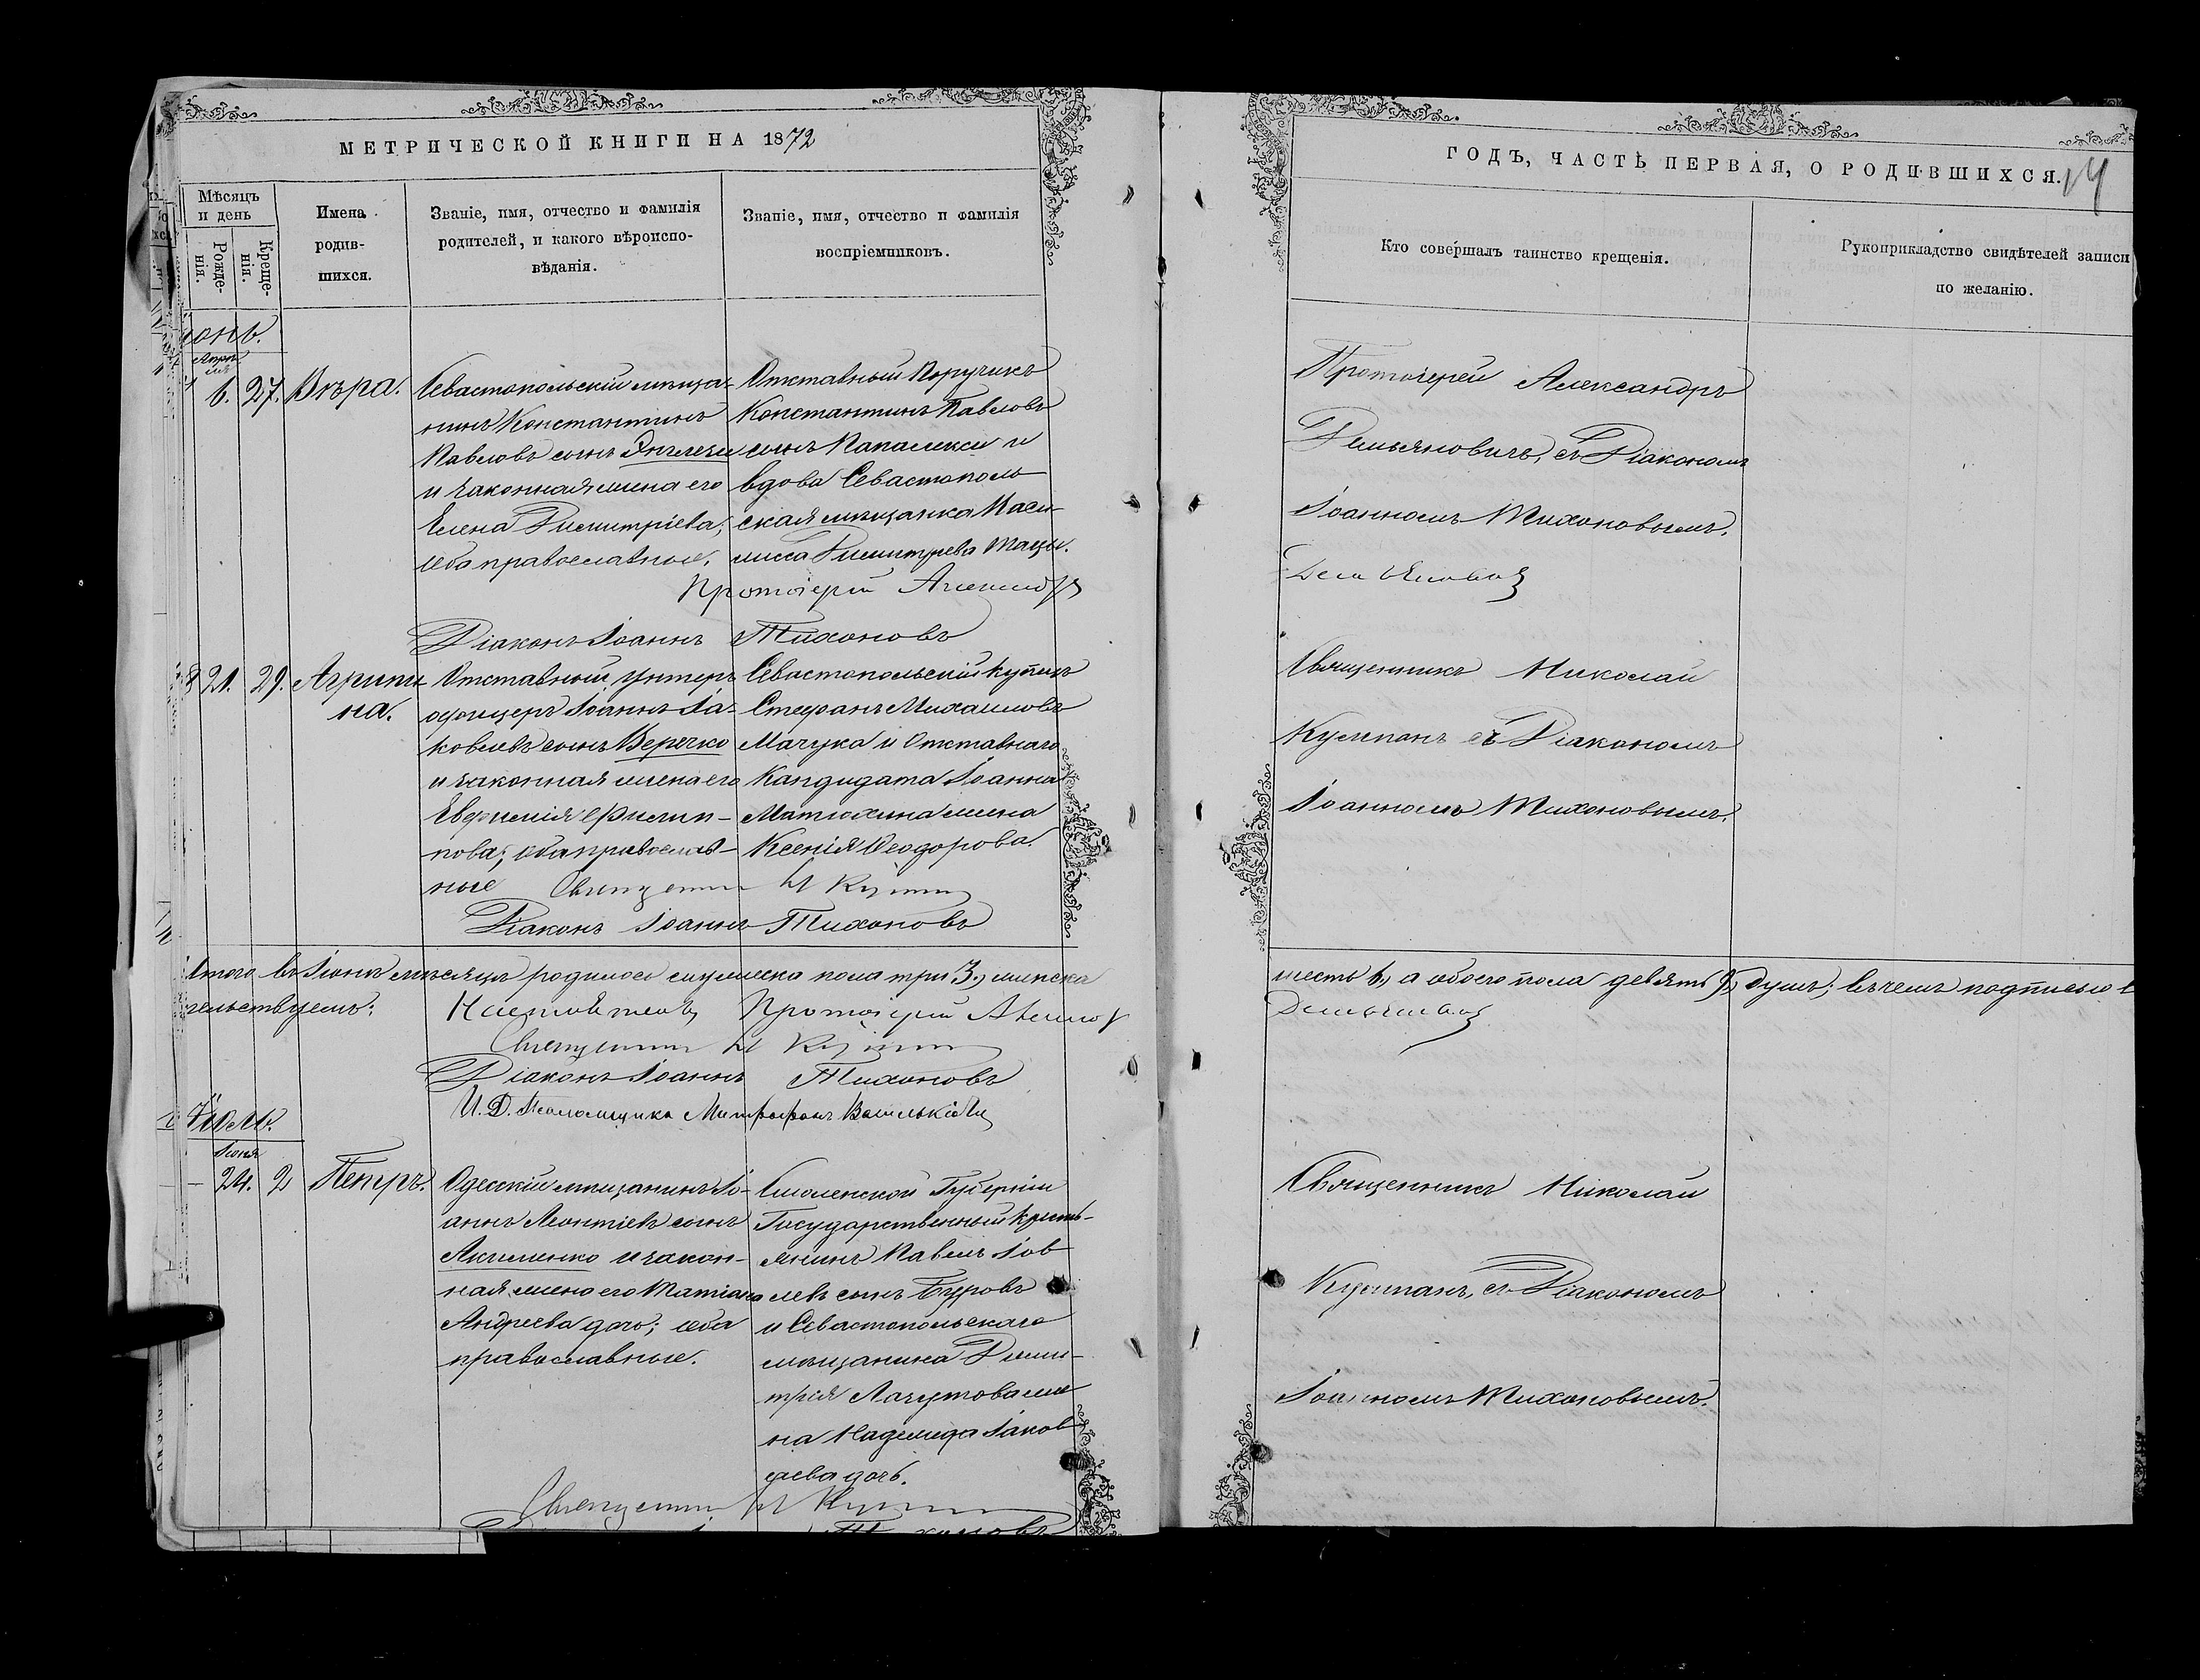 МЕТРИЧЕСКОЙ КНИГИ НА 1872
Мѣсяцъ и день
Рожденія.
Крещенія.
Имена родившихся.
Званіе, имя, отчество и фамилія родителей, и какого вѣроисповѣданія.
Званіе, имя, отчество и фамилія воспріемниковъ.
Апрѣля
6. 27. Вѣра.
Севастопольскій мѣща-
нинъ Константинъ
Павловъ сынъ
и законная жена его
Елена Димитріева;
оба православные.
Отставный Поручикъ
Константинъ Павловъ
сынъ Папалекси и
вдова Севастополь
ская мѣщанка
Димитріева
Протоіерей Александръ
Діаконъ Іоаннъ Тихоновъ
8 21. 29. Агрипи
на.
Отставный унтеръ
офицеръ Іоаннъ Іа-
ковлевъ сынъ Веречко
и законная жена его
Евфимія Филип-
пова; оба православ-
ные
Севастопольскій купецъ
Стефанъ Михаиловъ
Мачука и Отставнаго
Кандидата Іоанна
Матюхина жена
Ксенія Ѳеодорова.
Священникъ Н Ку
Діаконъ Іоаннъ Тихоновъ
Итого въ Іюнѣ мѣсяцѣ родилось мужеска пола три 3, женска
тельствуемъ:
Настоятель Протоіерей Александръ
Священникъ Н Ку
Діаконъ Іоаннъ Тихоновъ
И. Д. Псаломщика Митрофанъ
Іюль.
Іюня
24. 2 Петръ.
Одесскій мѣщанинъ Іо-
аннъ Леонтіевъ сынъ
Акименко и закон-
ная жена его Татіана
Андреева дочь; оба
православные.
Смоленской Губерніи
Государственный кресть-
янинъ Павелъ Іов
левъ сынъ Буровъ
и Севастопольскаго
мѣщанина Дими-
трія Лагутова же
на Надежда Іаков
лева дочь.
Священникъ Н Ку
Тихоновъ
ГОДЪ, ЧАСТЬ ПЕРВАЯ, О РОДИВШИХСЯ.
14
Кто совершалъ таинство крещенія.
Рукоприкладство свидѣтелей записи
по желанію.
Протоіерей Александръ
Демьяновичъ, съ Діакономъ
Іоанномъ Тихоновымъ.
Демьяновичъ
Священникъ Николай
Кульпанъ съ Діакономъ
Іоанномъ Тихоновымъ.
шесть 6, а обоего пола девять 9, душъ; въ чемъ подписью
Демьяновичъ
Священникъ Николай
Кульпанъ, съ Діакономъ
Іоанномъ Тихоновымъ.